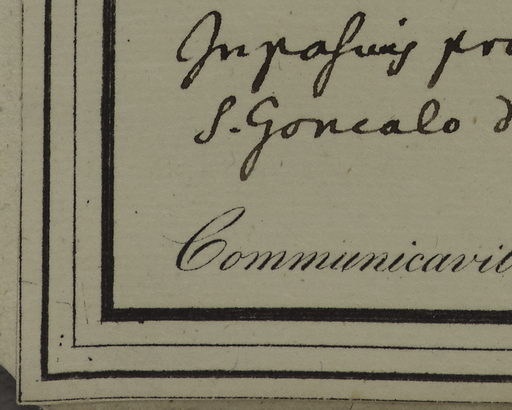 In pascuis pro
S. Goncalo d
Communicavit